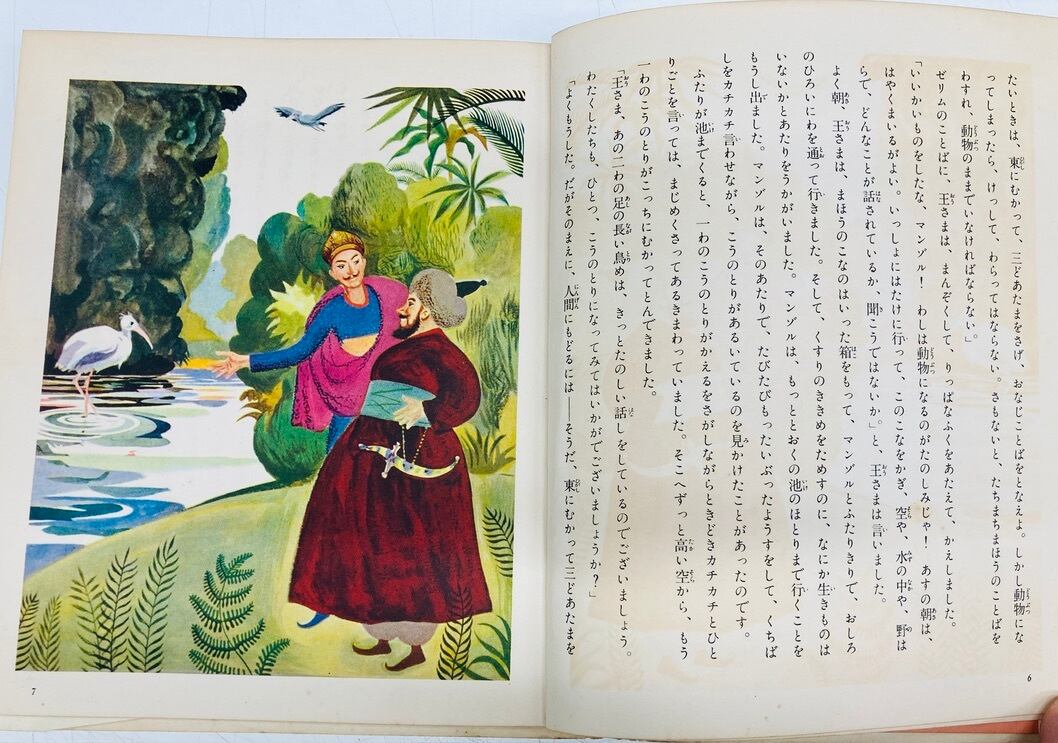 たいときは、東にむかって、三どあたまをさげ、おなじことばをとなえよ。しかし動物にな
ってしまったら、けっして、わらってはならない。さもないと、たちまちまほうのことばを
わすれ、動物のままでいなければならない。」
ゼリムのことばに、王さまは、まんぞくして、りっぱなふくをあたえて、かえしました。
「いいかいものをしたな、マンゾル！　わしは動物になるのがたのしみじゃ！　あすの朝は、
はやくまいるがよい。いっしょにはたけに行って、このこなをかぎ、空や、水の中や、野は
らで、どんなことが話されているか、聞こうではないか。」と、王さまは言いました。
よく朝、王さまは、まほうのこなのはいった箱をもって、マンゾルとふたりきりで、おしろ
のひろいにわを通って行きました。そして、くすりのききめをためすのに、なにか生きものは
いないかとあたりをうかがいました。マンゾルは、もっととおくの池のほとりまで行くことを
もうし出ました。マンゾルは、そのあたりで、たびたびもったいぶったようすをして、くちば
しをカチカチ言わせながら、こうのとりがあるいているのを見かけたことがあったのです。
ふたりが池までくると、一わのこうのとりがかえるをさがしながらときどきカチカチとひと
りごとを言っては、まじめくさってあるきまわっていました。そこへずっと高い空から、もう
一わのこうのとりがこっちにむかってとんできました。
「王さま、あの二わの足の長い鳥めは、きっとたのしい話しをしているのでございましょう。
わたくしたちも、ひとつ、こうのとりになってみてはいかがでございましょうか？」
「よくもうした。だがそのまえに、人間にもどるには――そうだ、東にむかって三どあたまを
6
7